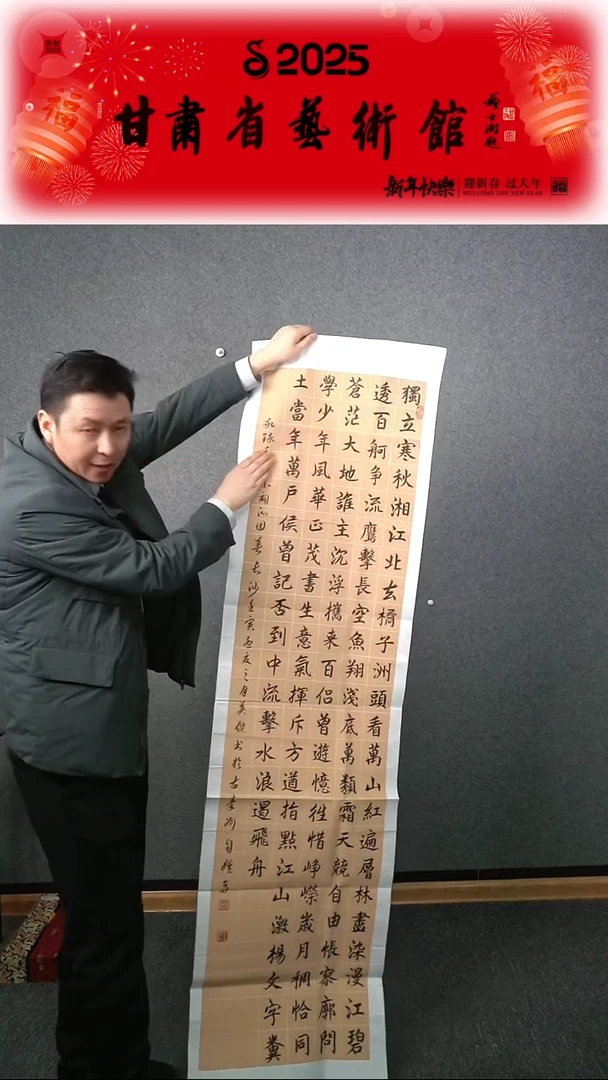 2025
福
福
甘肅省藝術館
新年快樂
迎新春 过大年
WELCOME THE NEW YEAR
獨立寒秋湘江北去橘子洲頭看萬山紅遍層林盡染漫江碧
透百舸争流鷹擊長空魚翔淺底萬類霜天競自由悵寥廓問
蒼茫大地誰主沉浮攜来百侣曾遊憶徃惜崢嶸歲月稠恰同
學少年風華正茂書生意氣揮斥方道指點江山激楊文字糞
土當年萬户侯曾記否到中流擊水浪遏飛舟
春长沙壬寅孟夏之月英傑书於古秦州